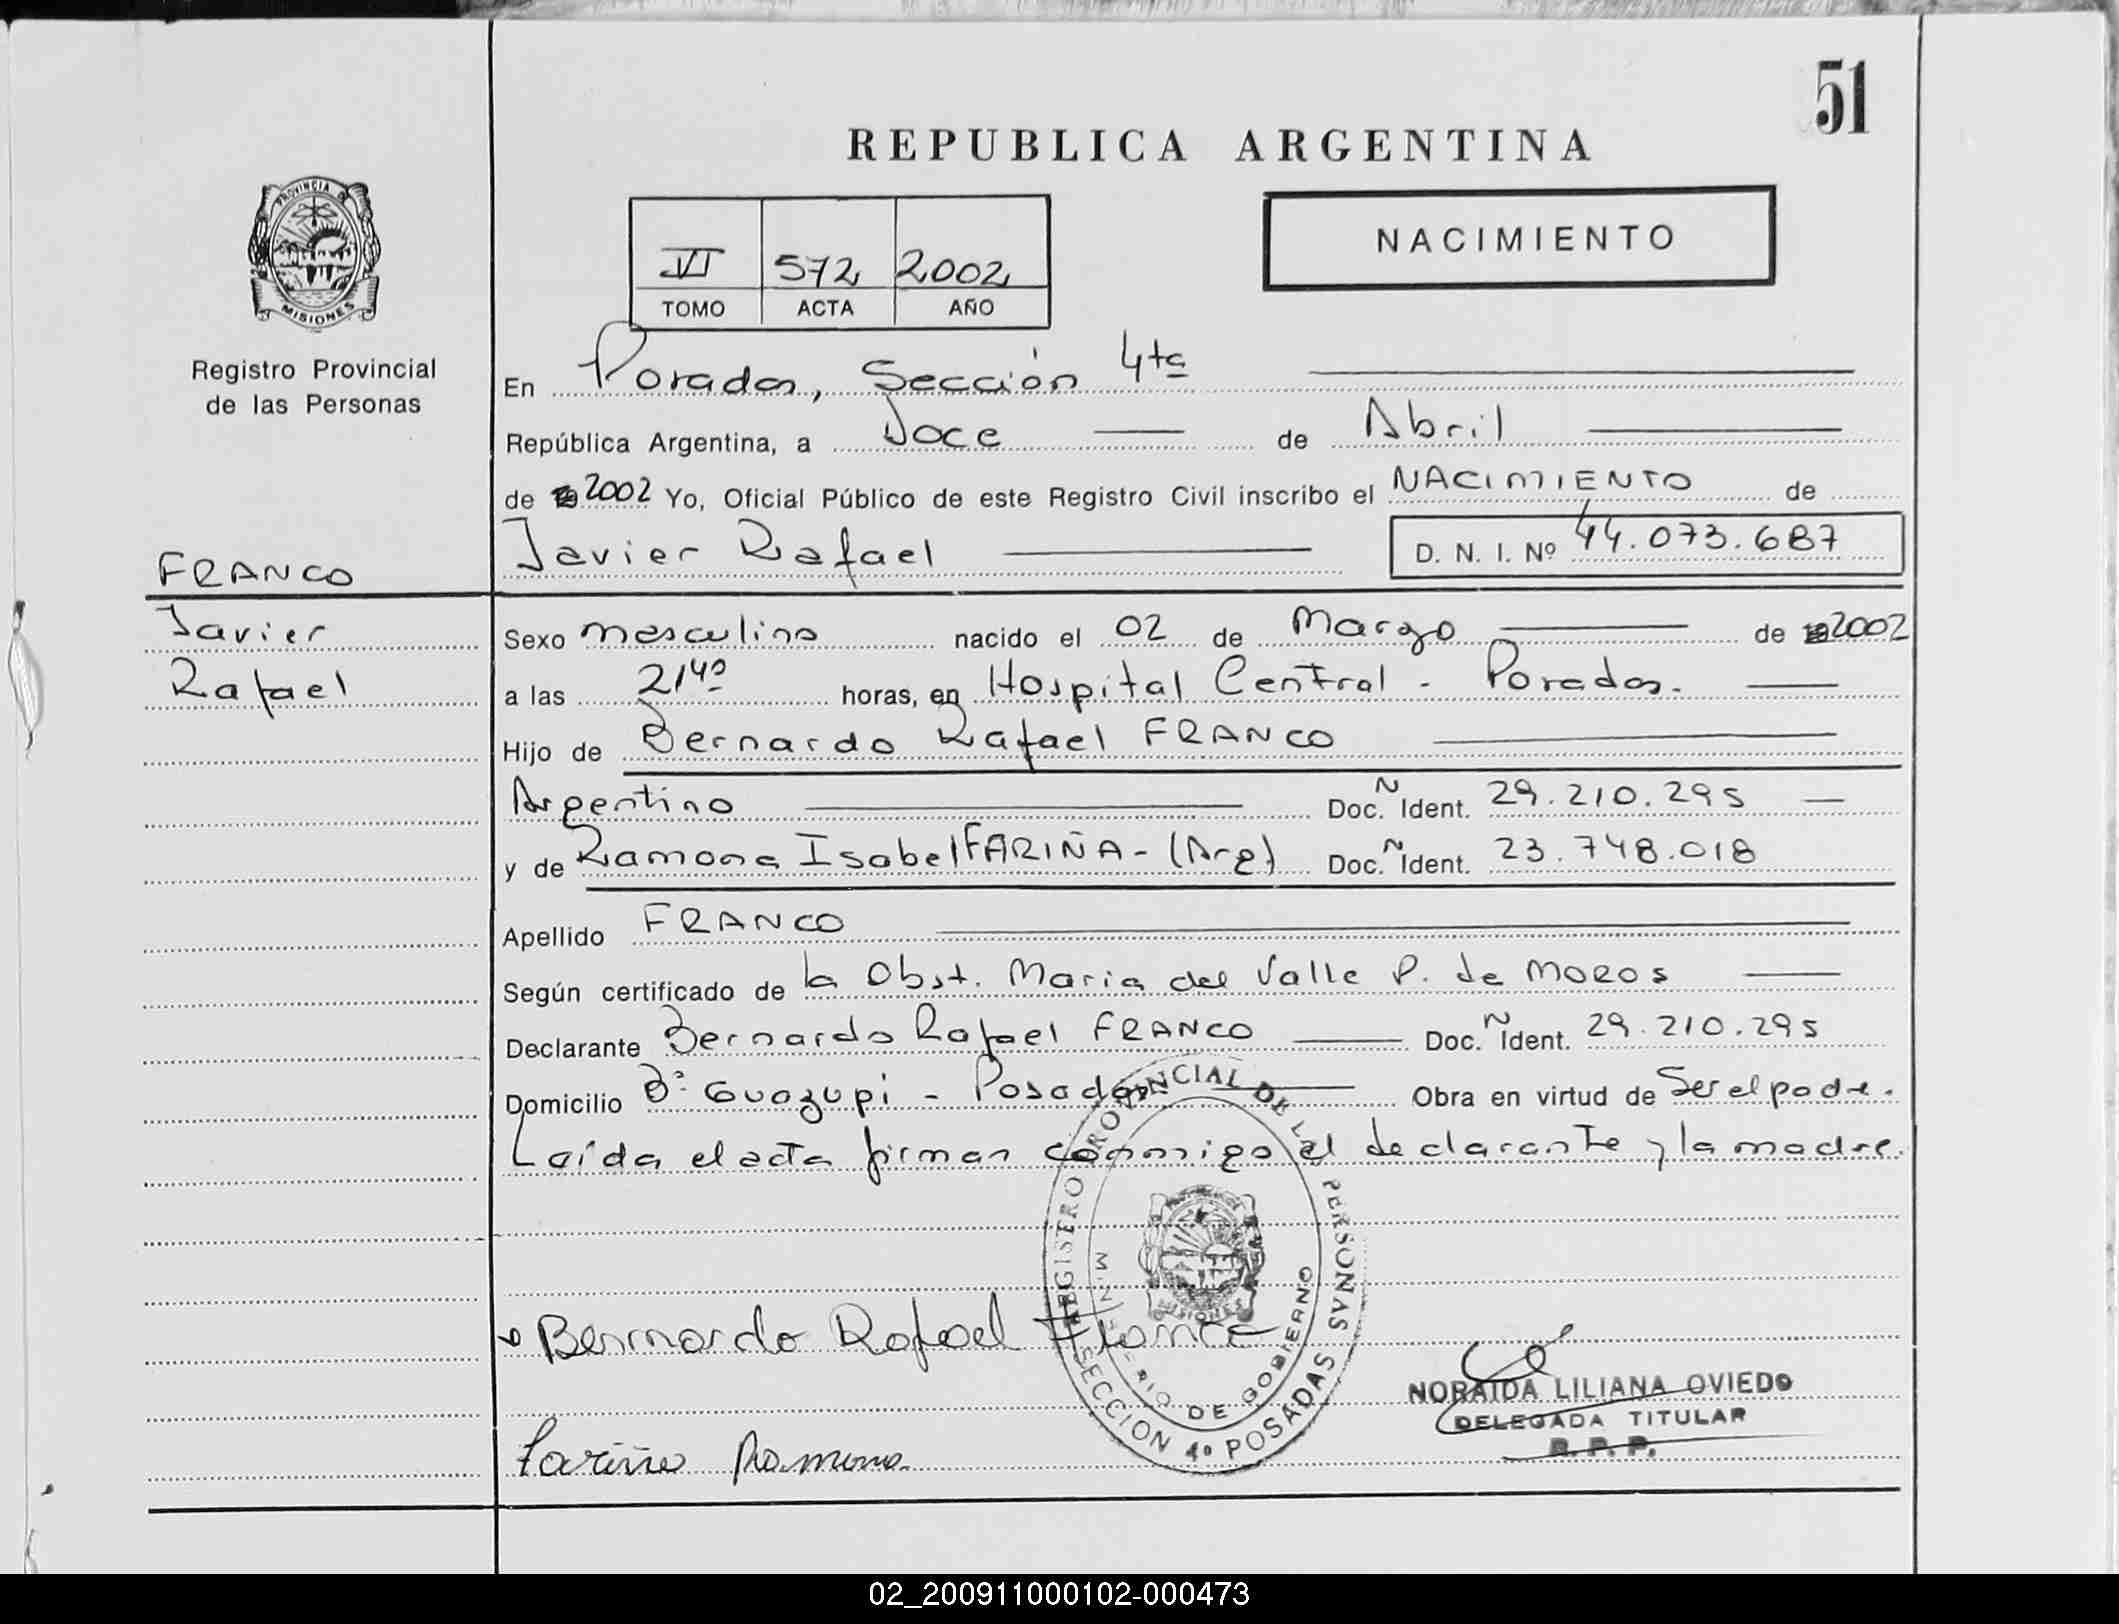 51
REPUBLICA ARGENTINA
PROVINCIA DE
MISIONES
NACIMIENTO
VI 572 2002
TOMO ACTA AÑO
Registro Provincial
de las Personas
En Posadas, Sección 4ta
República Argentina, a Doce de Abril
de 2002 Yo, Oficial Público de este Registro Civil inscribo el NACIMIENTO de
Javier Rafael D. N. I. Nº 44.073.687
FRANCO
Javier
Rafael
Sexo masculino nacido el 02 de Marzo de 2002
a las 21⁴⁰ horas, en Hospital Central - Posadas.
Hijo de Bernardo Rafael FRANCO
Argentino Doc. N Ident. 29.210.295
y de Ramona Isabel FARIÑA - (Arg) Doc. N Ident. 23.748.018
Apellido FRANCO
Según certificado de la Obst. Maria del Valle P. de MOROS
Declarante Bernardo Rafael FRANCO Doc. N Ident. 29.210.295
Domicilio Bº Guazupi - Posadas Obra en virtud de Ser el padre.
Laída el acta firman conmigo el declarante y la madre.
REGISTRO PROVINCIAL DE LAS PERSONAS
MINISTERIO DE GOBIERNO
MISIONES
SECCION 4º POSADAS
Bernardo Rafael Franco
NORAIDA LILIANA OVIEDO
DELEGADA TITULAR
R. P. P.
Fariña Ramona
02_200911000102-000473